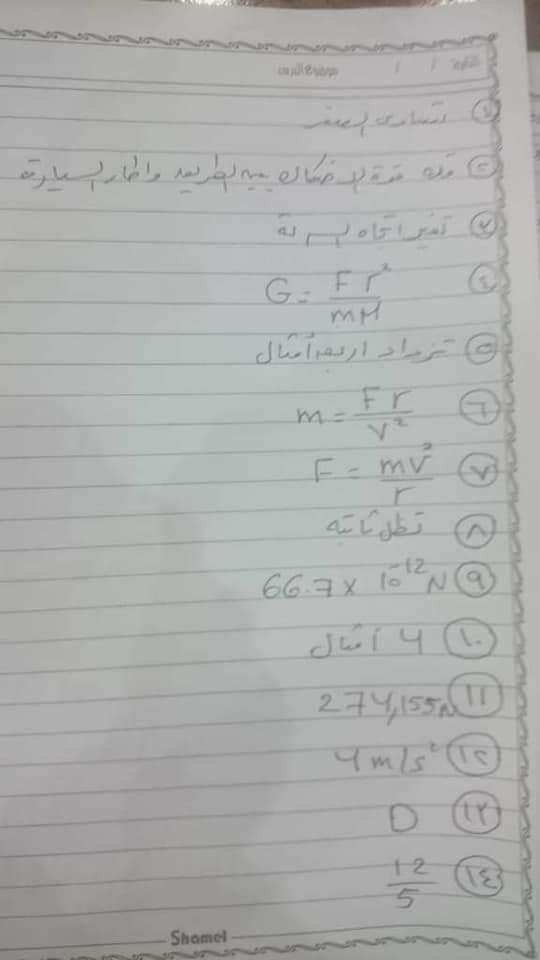 التاريخ / /
الموضوع
① تساوى الصفر
② قلة قوة الاحتكاك بين الطريق واطار السيارة
③ تغير اتجاه السرعة
④ G = F r² / mM
⑤ تزداد اربعة أمثال
⑥ m = F r / v²
⑦ F = mv² / r
⑧ تظل ثابته
⑨ 66.7 x 10⁻¹² N
⑩ 4 أمثال
⑪ 274,155 N
⑫ 4 m/s²
⑬ D
⑭ 12 / 5
Shamel